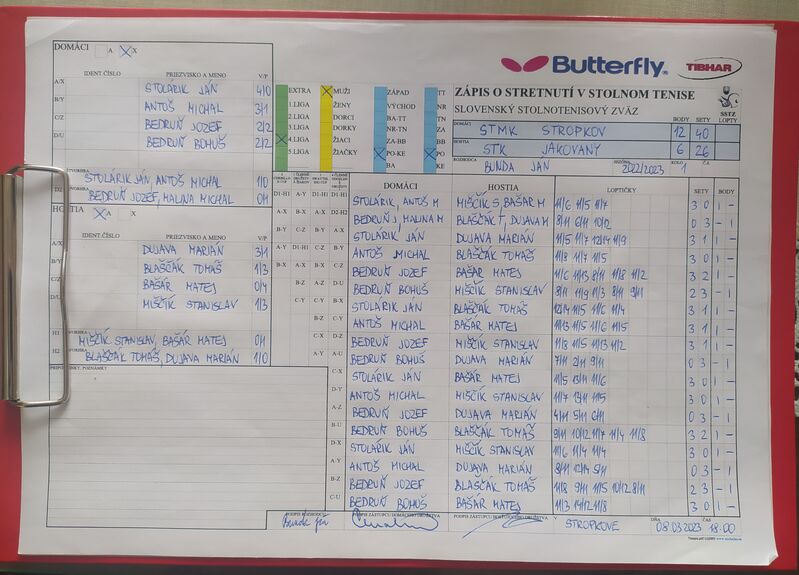 DOMÁCI A X
IDENT.ČÍSLO PRIEZVISKO A MENO V/P
A/X STOLÁRIK JÁN 4/0
B/Y ANTOŠ MICHAL 3/1
C/Z BEDRUŇ JOZEF 2/2
D/U BEDRUŇ BOHUŠ 2/2
ŠTVORHRA
STOLÁRIK JÁN, ANTOŠ MICHAL 1/0
D2 BEDRUŇ JOZEF, MALINA MICHAL 0/1
HOSTIA A X
IDENT.ČÍSLO PRIEZVISKO A MENO V/P
A/X DUJAVA MARIÁN 3/1
B/Y BLAŠČÁK TOMÁŠ 1/3
C/Z BAŠÁR MATEJ 0/4
D/U MIŠČÍK STANISLAV 1/3
H1 MIŠČÍK STANISLAV, BAŠÁR MATEJ 0/1
H2 BLAŠČÁK TOMÁŠ, DUJAVA MARIÁN 1/0
PRIPOMIENKY, POZNÁMKY
EXTRA MUŽI ZÁPAD TT
1.LIGA ŽENY VÝCHOD NR
2.LIGA DORCI BA-TT TN
3.LIGA DORKY NR-TN ZA
4.LIGA ŽIACI ZA-BB BB
5.LIGA ŽIAČKY PO-KE PO
BA KE
Butterfly TIBHAR
ZÁPIS O STRETNUTÍ V STOLNOM TENISE
SLOVENSKÝ STOLNOTENISOVÝ ZVÄZ SSTZ
DOMÁCI BODY SETY LOPTY
STMK STROPKOV 12 40
HOSTIA STK JAKOVANY 6 26
ROZHODCA BUNDA JÁN SEZÓNA 2022/2023 KOLO 1 Č.
DOMÁCI HOSTIA LOPTIČKY SETY BODY
D1-H1 STOLÁRIK, ANTOŠ M MIŠČÍK S, BAŠAR M 11/6 11/5 11/7 3 0 1 -
D2-H2 BEDRUŇ J, MALINA M BLAŠČÁK T, DUJAVA M 8/11 6/11 10/12 0 3 - 1
A-X STOLÁRIK JÁN DUJAVA MARIÁN 11/5 11/7 12/14 11/9 3 1 1 -
B-Y ANTOŠ MICHAL BLAŠČÁK TOMÁŠ 11/8 11/4 11/5 3 0 1 -
C-Z BEDRUŇ JOZEF BAŠÁR MATEJ 11/6 11/13 8/11 11/8 11/2 3 2 1 -
BEDRUŇ BOHUŠ MIŠČÍK STANISLAV 8/11 11/9 11/3 8/11 9/11 2 3 - 1
STOLÁRIK JÁN BLAŠČÁK TOMÁŠ 12/14 11/5 11/6 11/4 3 1 1 -
ANTOŠ MICHAL BAŠÁR MATEJ 11/13 11/5 11/6 11/5 3 1 1 -
BEDRUŇ JOZEF MIŠČÍK STANISLAV 11/8 11/5 11/13 11/2 3 1 1 -
BEDRUŇ BOHUŠ DUJAVA MARIÁN 7/11 2/11 9/11 0 3 - 1
C-X STOLÁRIK JÁN BAŠÁR MATEJ 11/5 13/11 11/6 3 0 1 -
D-Y ANTOŠ MICHAL MIŠČÍK STANISLAV 11/7 13/11 11/5 3 0 1 -
A-Z BEDRUŇ JOZEF DUJAVA MARIÁN 4/11 5/11 6/11 0 3 - 1
B-U BEDRUŇ BOHUŠ BLAŠČÁK TOMÁŠ 9/11 10/12 11/7 11/4 11/8 3 2 1 -
D-X STOLÁRIK JÁN MIŠČÍK STANISLAV 11/6 11/4 11/4 3 0 1 -
A-Y ANTOŠ MICHAL DUJAVA MARIÁN 8/11 12/14 5/11 0 3 - 1
B-Z BEDRUŇ JOZEF BLAŠČÁK TOMÁŠ 11/8 9/11 11/5 10/12 8/11 2 3 - 1
C-U BEDRUŇ BOHUŠ BAŠÁR MATEJ 11/3 14/12 11/8 3 0 1 -
PODPIS ROZHODCU PODPIS ZÁSTUPCU DOMÁCEHO DRUŽSTVA PODPIS ZÁSTUPCU HOSŤUJÚCEHO DRUŽSTVA V STROPKOVE DŇA 08.03.2023 ČAS 18:00